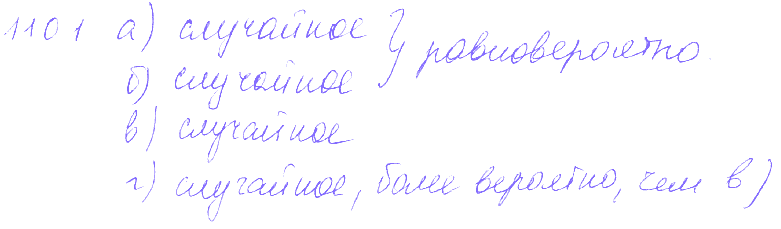 1101 а) случайное } равновероятно.
б) случайное
в) случайное
г) случайное, более вероятно, чем в)